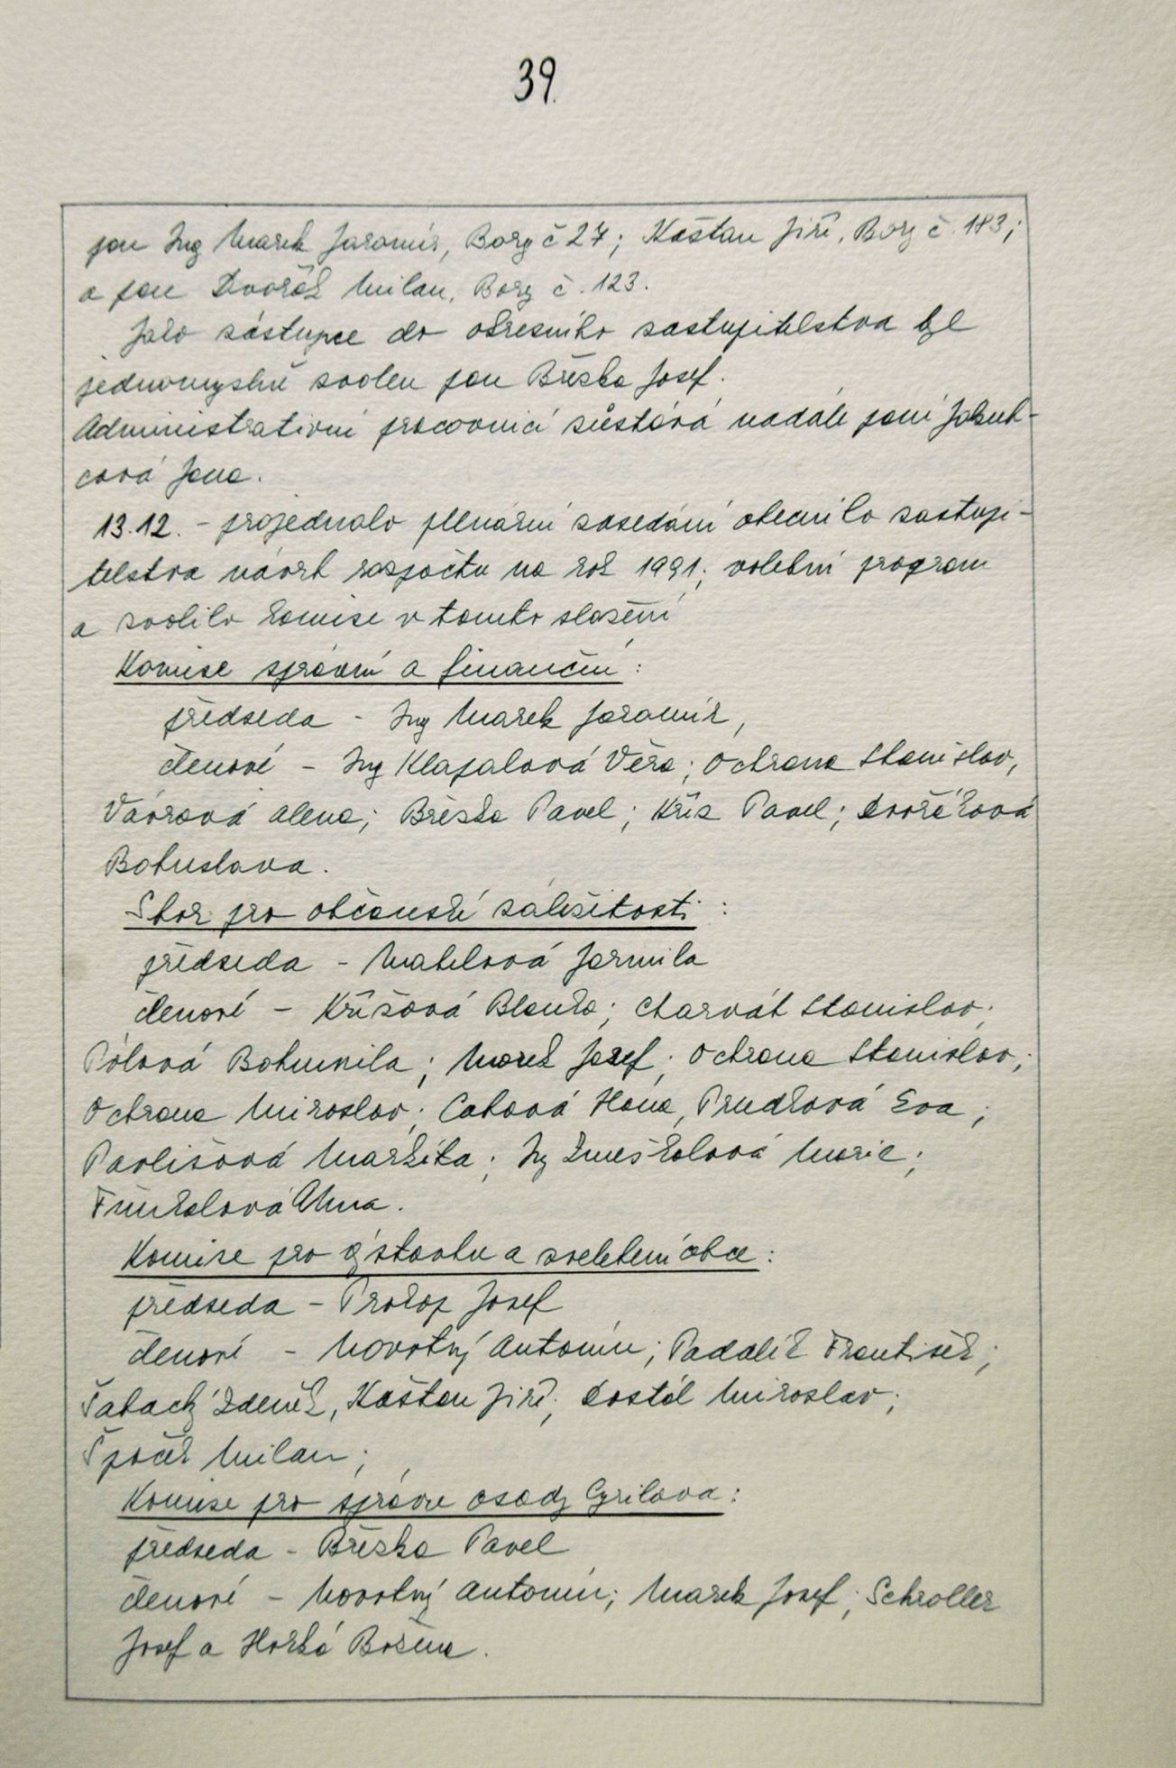 39.
pan Ing Marek Jaromír, Bory č 27; Kaštan Jiří, Bory č. 183;
a pan Dvořák Milan, Bory č. 123.
Jako zástupce do okresního zastupitelstva byl
jednomyslně zvolen pan Březka Josef.
Administrativní pracovnicí zůstává nadále paní Jakub-
cová Jana.
13.12. - projednalo plenární zasedání obecního zastupi-
telstva návrh rozpočtu na rok 1991; volební program
a zvolilo komise v tomto složení
Komise správní a finanční:
předseda - Ing Marek Jaromír,
členové - Ing Klapalová Věra; Ochrana Stanislav,
Vávrová Alena; Březka Pavel; Kříž Pavel; Dvořáková
Bohuslava.
Sbor pro občanské záležitosti:
předseda - Malelová Jarmila
členové - Křížová Blanka; Charvát Stanislav;
Pólová Bohumila; Marek Josef; Ochrana Stanislav;
Ochrana Miroslav; Cahová Hana, Prudková Eva;
Pavlišová Markéta; Ing Zmeškalová Marie;
Anna.
Komise pro výstavbu a zvelebení obce:
předseda - Prokop Josef
členové - Novotný Antonín; Padalík František;
Zdeněk, Kaštan Jiří; Dostál Miroslav;
Špaček Milan;
Komise pro správu osady Cyrilova:
předseda - Březka Pavel
členové - Novotný Antonín; Marek Josef; Schroller
Josef a Horká Božena.